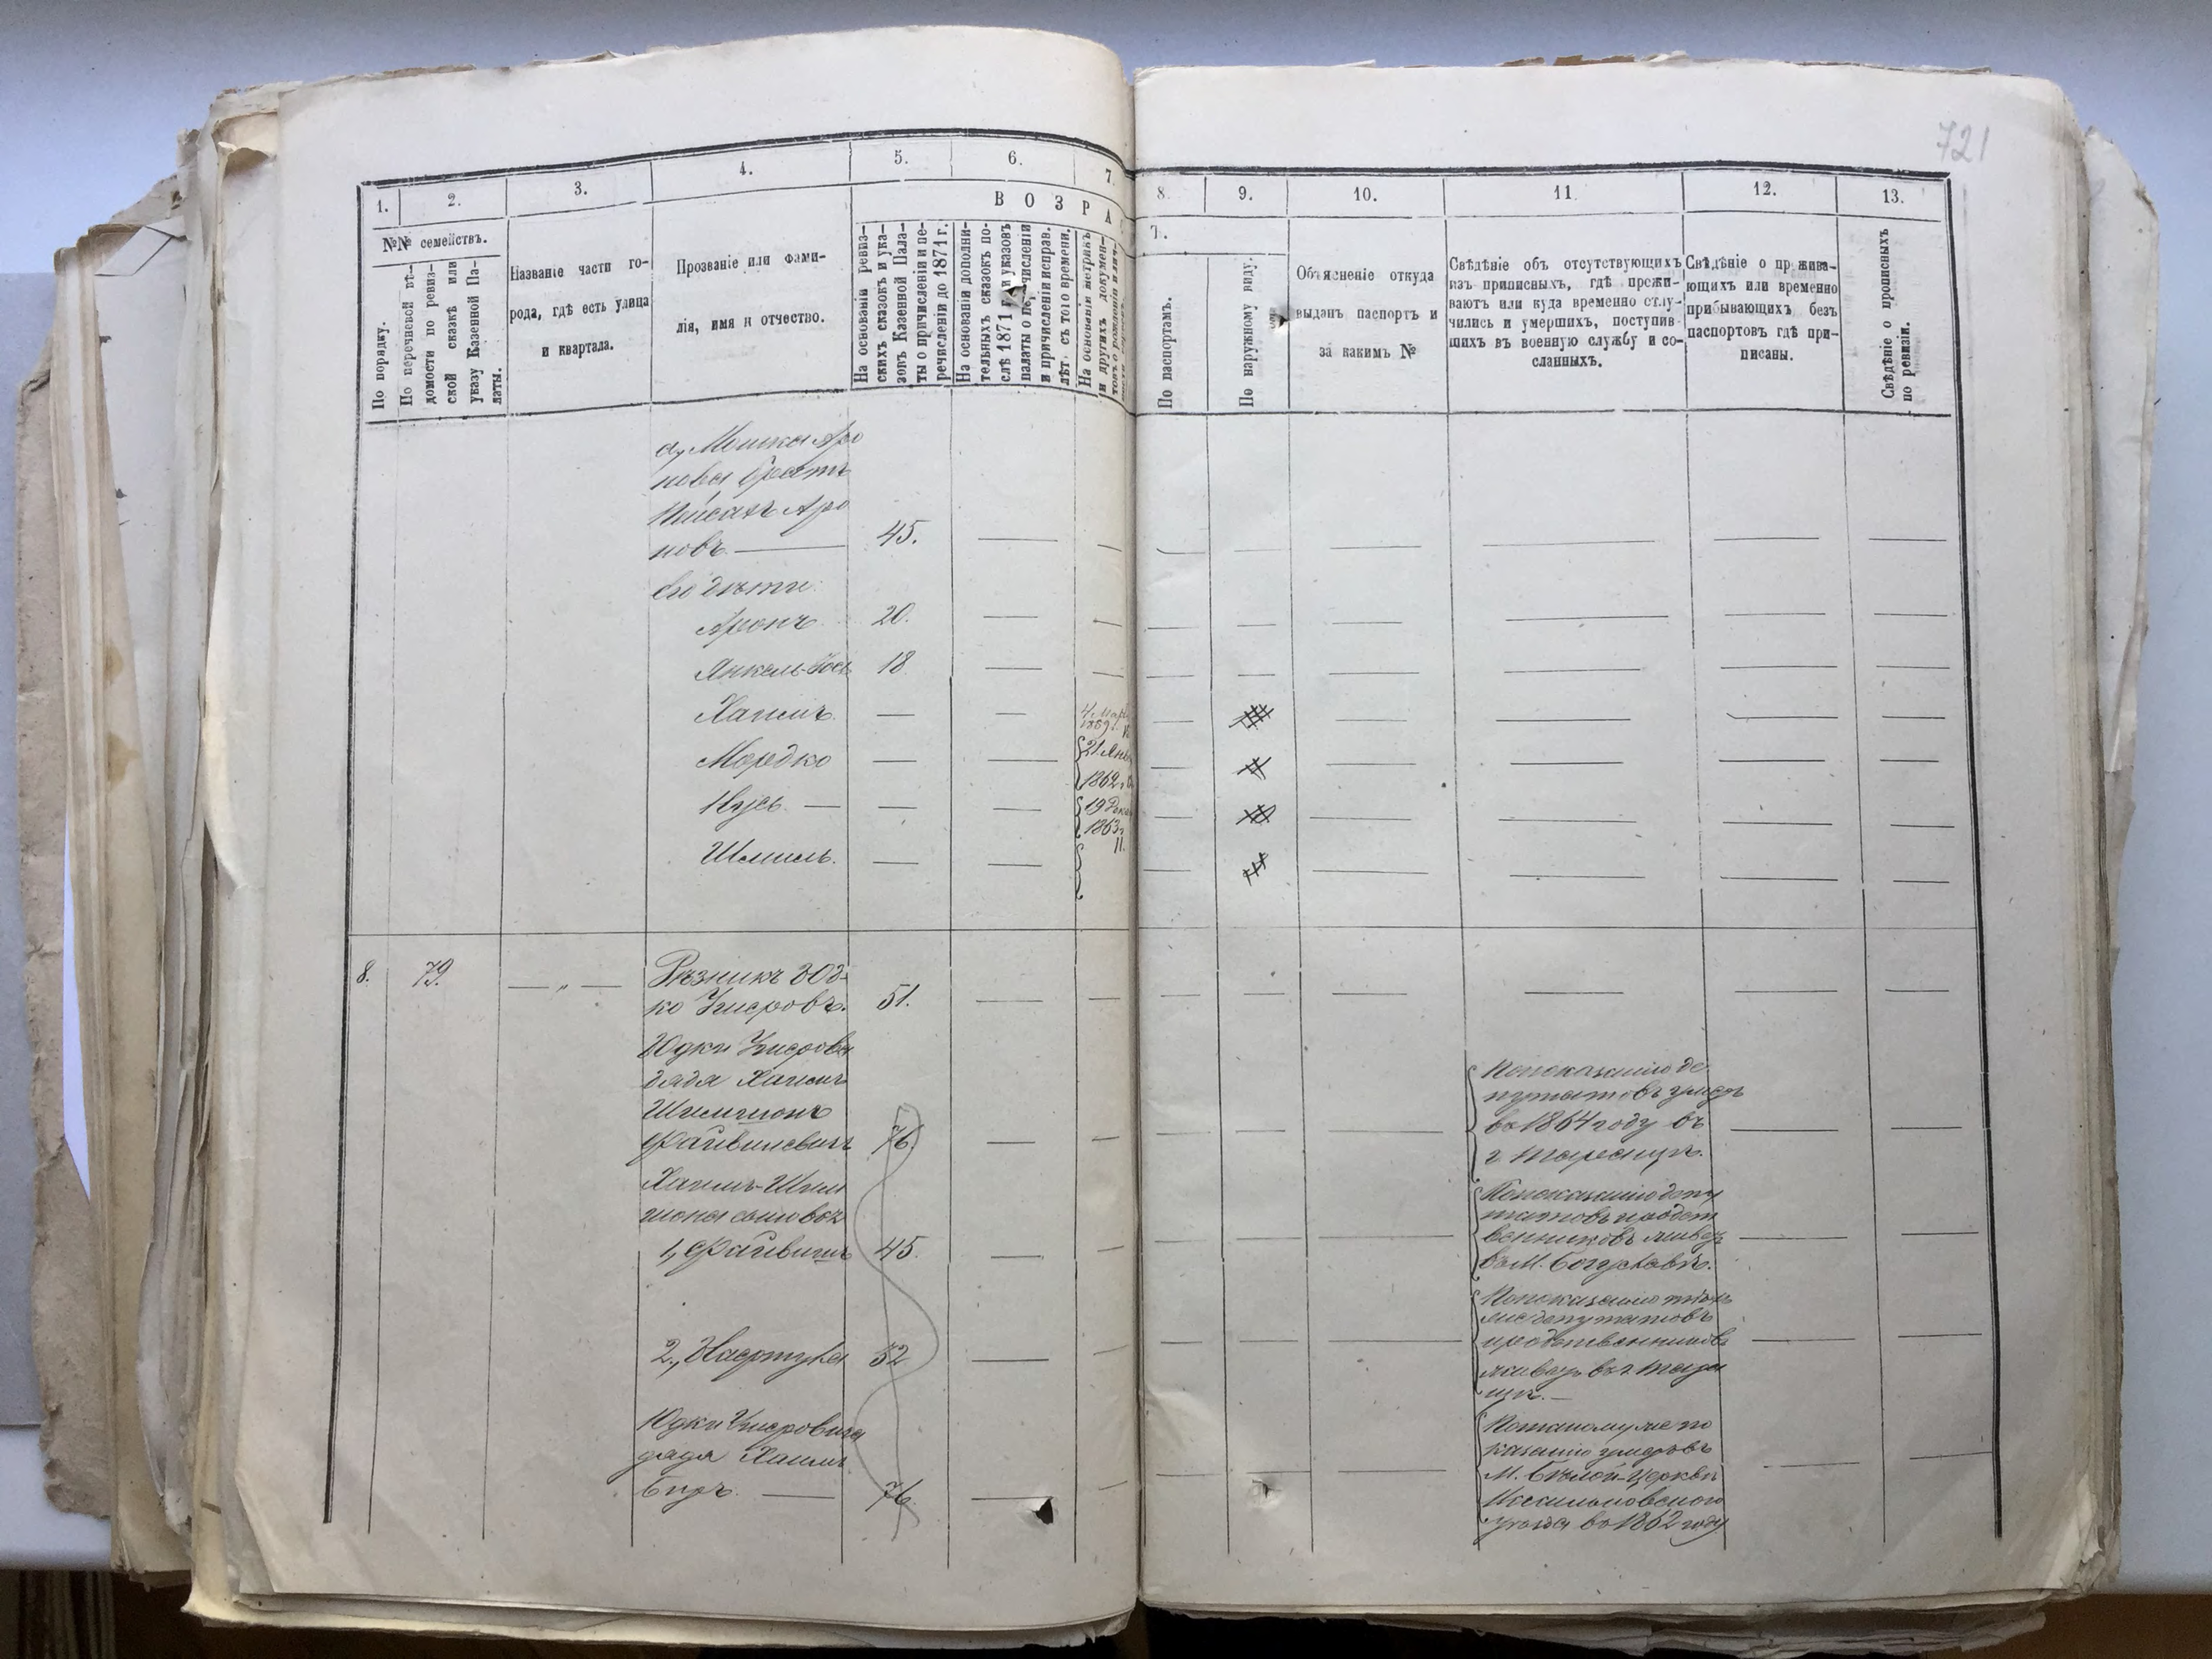 721
1. 2. 3. 4. 5. 6. 7. 8. 9. 10. 11. 12. 13.
ВОЗРА
Т.
№№ семействъ.
По порядку.
По перечневой вѣ-
домости по ревиз-
ской сказкѣ или
указу Казенной Па-
латы.
Названіе части го-
рода, гдѣ есть улица
и квартала.
Прозваніе или фами-
лія, имя и отчество.
На основаніи ревиз-
скихъ сказокъ и ука-
зовъ Казенной Пала-
ты о причисленіи и пе-
речисленіи до 1871 г.
На основаніи дополни-
тельныхъ сказокъ по-
слѣ 1871 г. и указовъ
палаты о причисленіи
и причисленіи исправ.
лѣтъ съ того времени.
На основаніи метрикъ
и другихъ докумен-
По паспортамъ.
По наружному виду.
Объясненіе откуда
выданъ паспортъ и
за какимъ №
Свѣдѣніе объ отсутствующихъ
изъ приписныхъ, гдѣ прожи-
ваютъ или куда временно отлу-
чились и умершихъ, поступив-
шихъ въ военную службу и со-
сланныхъ.
Свѣдѣніе о прожива-
ющихъ или временно
прибывающихъ безъ
паспортовъ гдѣ при-
писаны.
Свѣдѣніе о прописныхъ
по ревизіи.
а, Мошка Аро
нова братъ
Пейсахъ Аро
новъ — 45.
Его дѣти
Аронъ 20.
Янкель-Іось 18
Хаимъ
4 Мар
Мордко
21 Янв
1862
Нусь —
19 Дек
1863
11.
Шмиль.
8. 79. — „ — Рѣзникъ Юд-
ко Ушеровъ. 51.
Юдки Ушерова
дядя Хаимъ
Шимшонъ
Файвишевичъ 76.
По показанію де
путатовъ умеръ
въ 1864 году въ
г. Таращѣ.
Хаимъ-Шим
шона сыновья
1, Файвишъ 45.
По показанію депу
татовъ и родст
венниковъ живетъ
въ М. Богуславѣ.
2, 52
По показанію тѣхъ
же депутатовъ
и родственниковъ
живетъ въ г. Тара
щѣ. —
Юдки Ушеровича
дядя Хаимъ
Беръ. — 76.
По таковому же по
казанію умеръ въ
М. Бѣлой-Церкви
Васильковскаго
уѣзда въ 1862 году